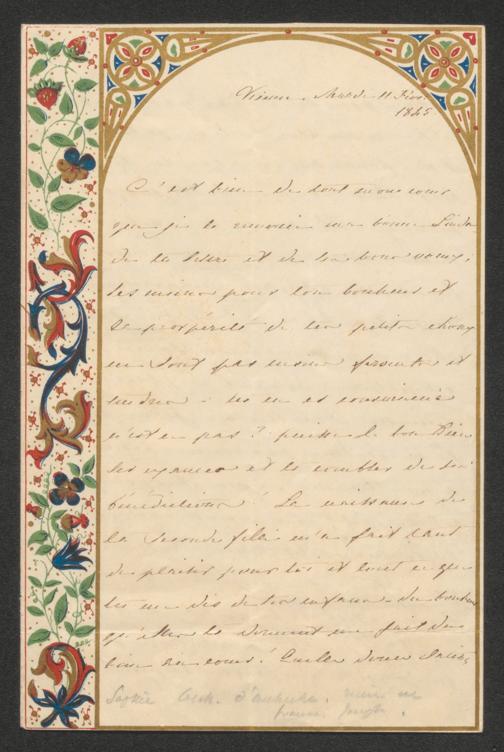 Vienne, Mardi 11 Févr.
1845
C'est bien de tout mon cœur
que je te remercie ma bonne
de ta lettre et de tes bons vœux;
les miens pour ton bonheur et
la prospérité de ton petit
ne sont pas moins et
tendres - tu en es convaincue
n'est-ce pas? puisse le bon Dieu
les exaucer et te combler de ses
bénédictions! La naissance de
ta seconde fille m'a fait tant
de plaisir pour toi et tout ce que
tu me dis de tes enfans, du bonheur
qu'elles te donnent me fait du
bien au cœur! Quelle douce
Sophie mère de